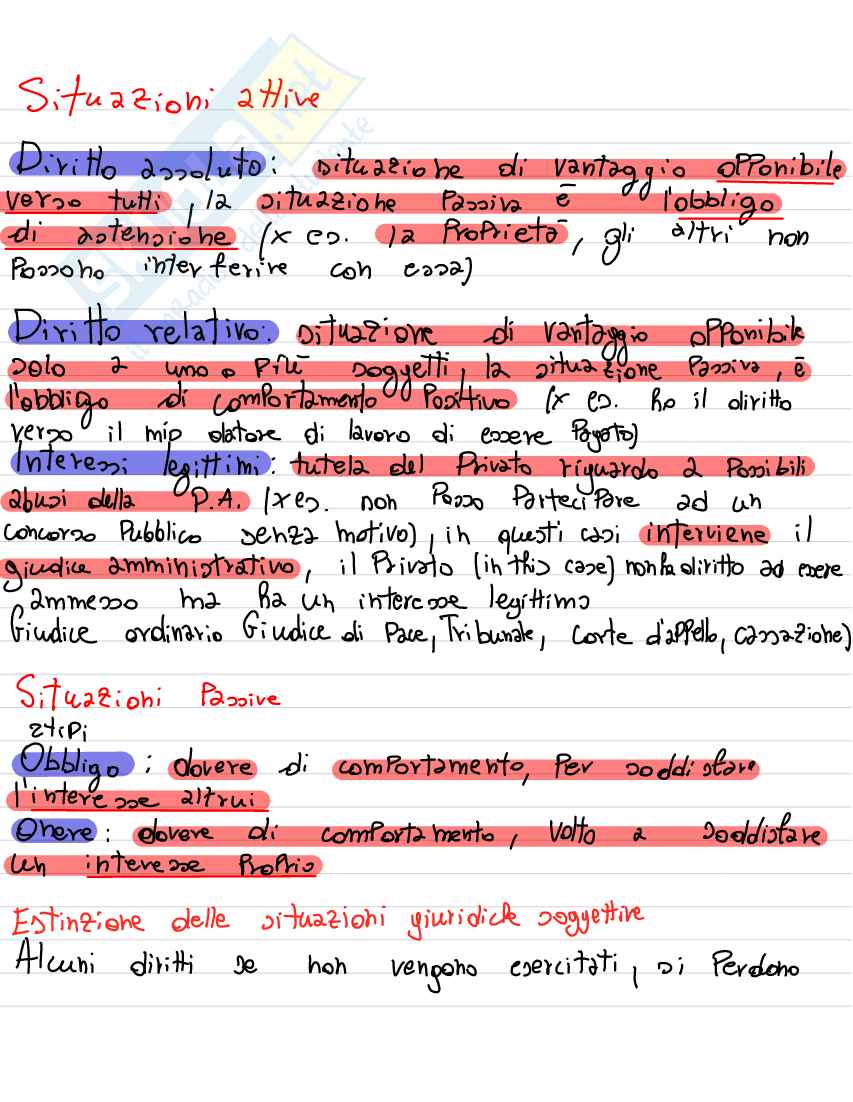 Situazioni attive
Diritto assoluto: situazione di vantaggio opponibile
verso tutti, la situazione passiva è l'obbligo
di astensione (x es. la proprietà, gli altri non
possono interferire con essa)
Diritto relativo: situazione di vantaggio opponibile
solo a uno o più soggetti, la situazione passiva, è
l'obbligo di comportamento positivo (x es. ho il diritto
verso il mio datore di lavoro di essere pagato)
Interessi legittimi: tutela del privato riguardo a possibili
abusi della P.A. (x es. non posso partecipare ad un
concorso pubblico senza motivo), in questi casi interviene il
giudice amministrativo, il privato (in this case) non ha diritto ad essere
ammesso ma ha un interesse legittimo
Giudice ordinario Giudice di Pace, Tribunale, Corte d'appello, cassazione)
Situazioni Passive
2 tipi
Obbligo: dovere di comportamento, per soddisfare
l'interesse altrui
Onere: dovere di comportamento, volto a soddisfare
un interesse proprio
Estinzione delle situazioni giuridiche soggettive
Alcuni diritti se non vengono esercitati, si perdono